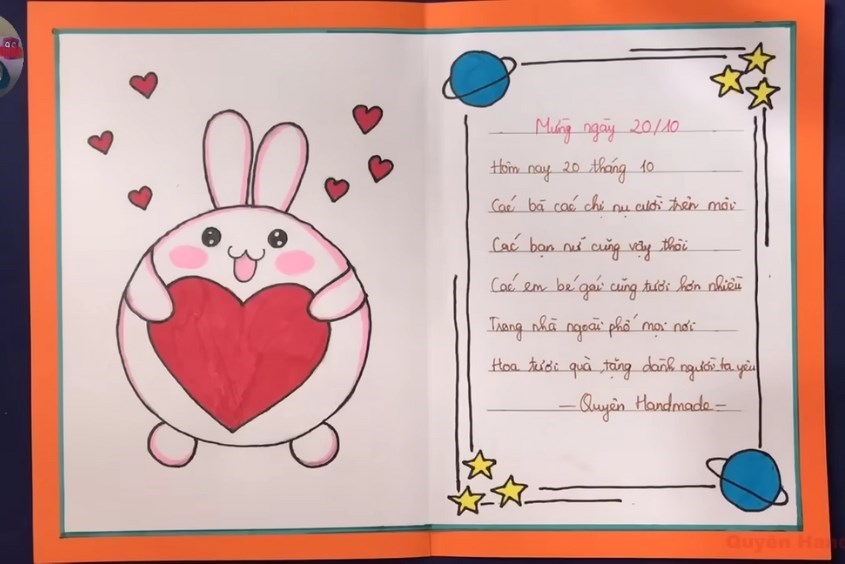 Mừng ngày 20/10
Hôm nay 20 tháng 10
Các bà các chị nụ cười trên môi
Các bạn nữ cũng vậy thôi
Các em bé gái cũng tươi hơn nhiều
Trong nhà ngoài phố mọi nơi
Hoa tươi quà tặng dành người ta yêu
— Quyên Handmade —
Quyên Han